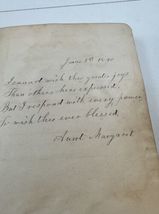 June 1st 18
I cannot wish thee greater joys
Than others have expressed,
But I respond with every power
To wish thee ever blessed,
Aunt Margaret